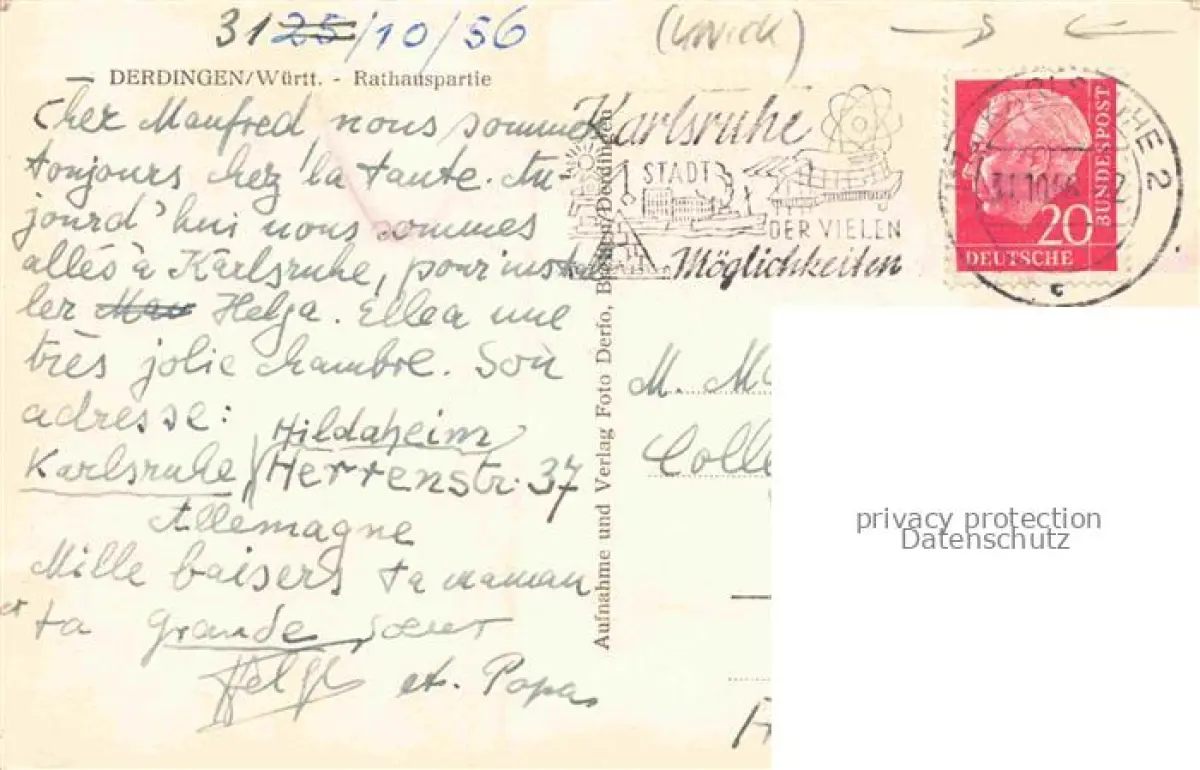 31 25/10/56
DERDINGEN/Württ. - Rathauspartie
Cher Manfred, nous sommes
toujours chez la tante. Au
jourd'hui nous sommes
allés à Karlsruhe, pour instal
ler Mau Helga. Elle a une
très jolie chambre. Son
adresse:
Hildaheim
Karlsruhe / Herrenstr. 37
Allemagne
Mille baisers ta maman
et ta grande soeur
Helga et. Papa
Aufnahme und Verlag Foto Derfo, Bretten/Derdingen
Karlsruhe
STADT
DER VIELEN
Möglichkeiten
KARLSRUHE 2
31.10.56
c
20
DEUTSCHE
BUNDESPOST
M. Ma
Colle
privacy protection
Datenschutz